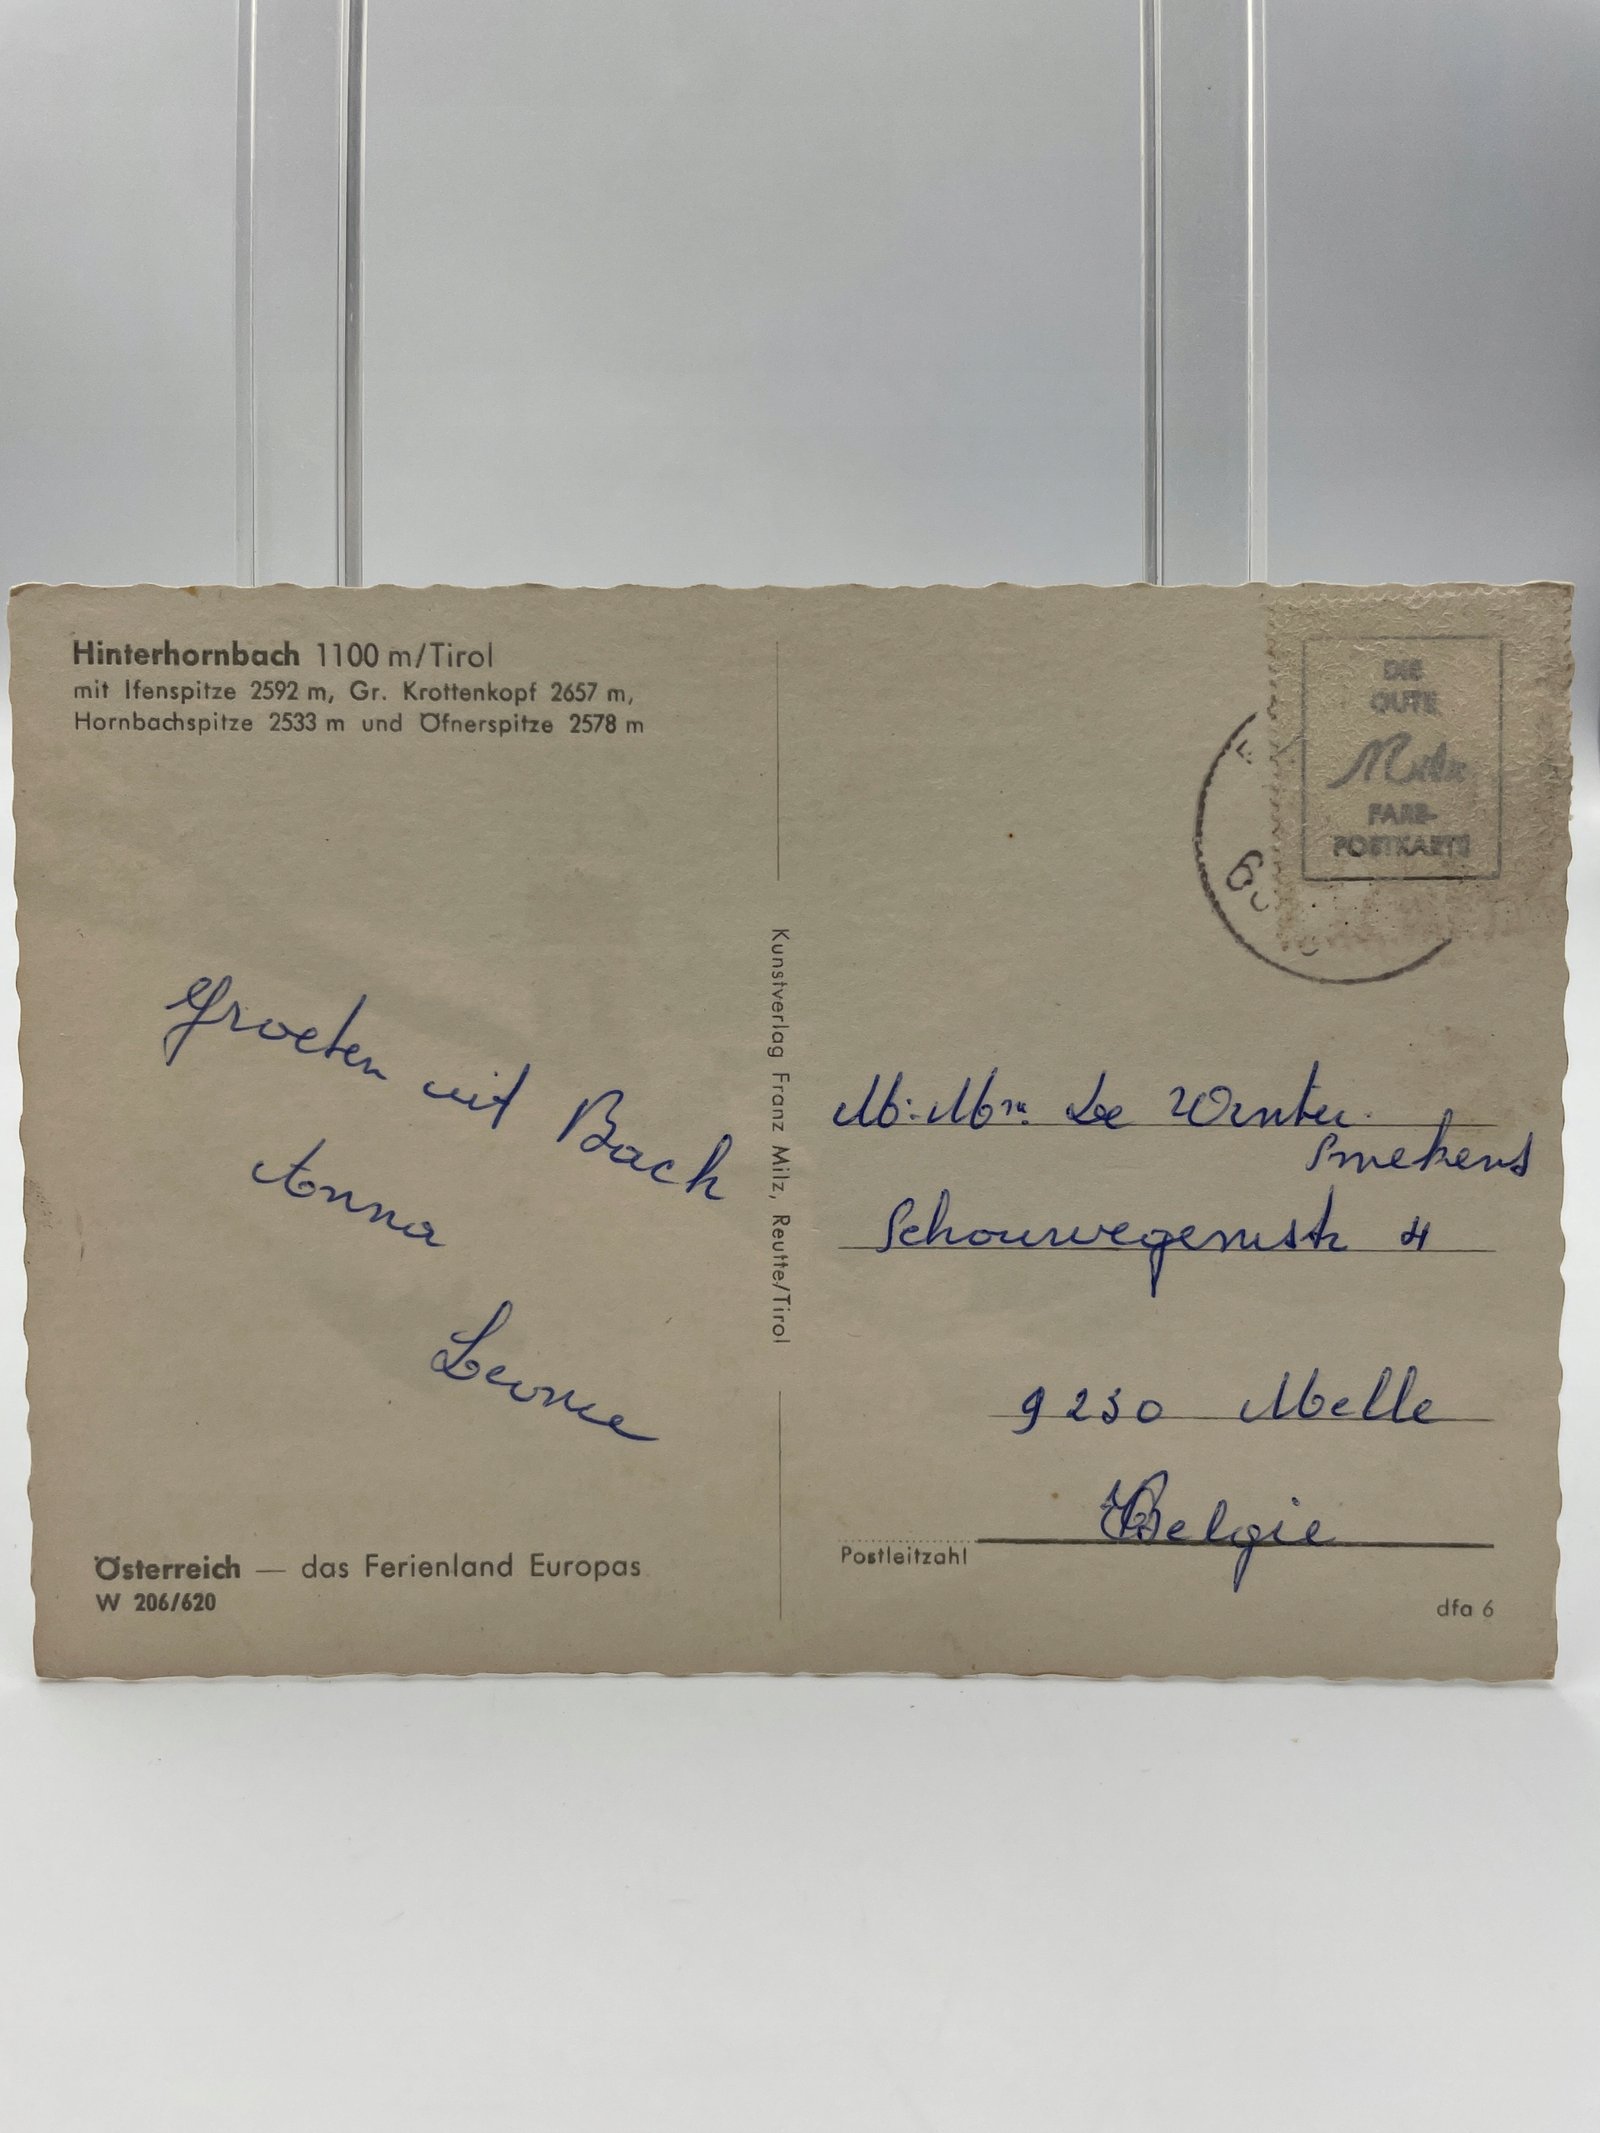 Hinterhornbach 1100 m/Tirol
mit Ifenspitze 2592 m, Gr. Krottenkopf 2657 m,
Hornbachspitze 2533 m und Öfnerspitze 2578 m
Groeten uit Bach
Anna
Leonce
Österreich — das Ferienland Europas
W 206/620
Kunstverlag Franz Milz, Reutte/Tirol
DIE
GUTE
Milz
FARB-
POSTKARTE
M. Mr. De Winter
Smekens
Schouwegenstr 4
9230 Melle
Belgie
Postleitzahl
dfa 6